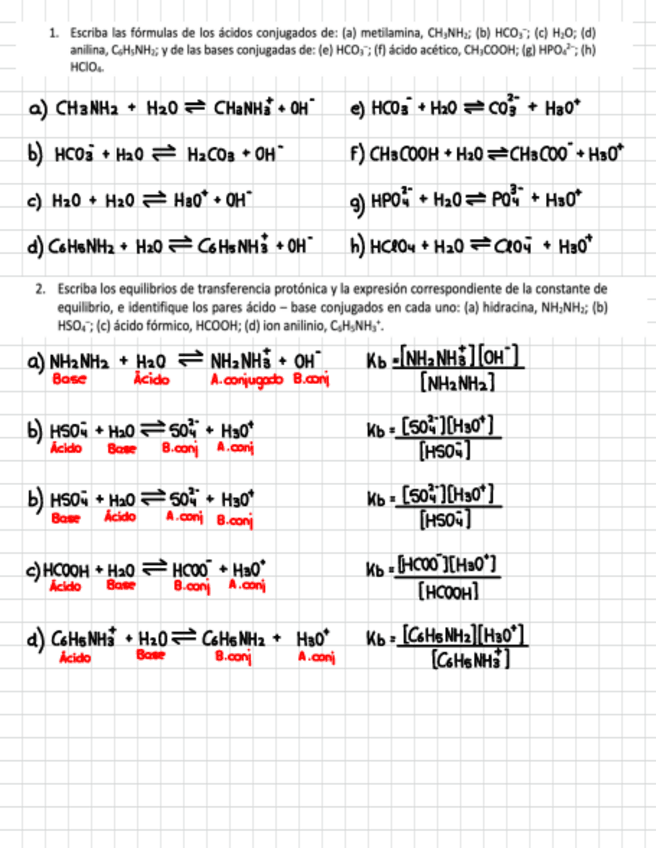 1. Escriba las fórmulas de los ácidos conjugados de: (a) metilamina, CH₃NH₂; (b) HCO₃⁻; (c) H₂O; (d)
anilina, C₆H₅NH₂; y de las bases conjugadas de: (e) HCO₃⁻; (f) ácido acético, CH₃COOH; (g) HPO₄²⁻; (h)
HClO₄.
a) CH₃NH₂ + H₂O ⇌ CH₃NH₃⁺ + OH⁻
e) HCO₃⁻ + H₂O ⇌ CO₃²⁻ + H₃O⁺
b) HCO₃⁻ + H₂O ⇌ H₂CO₃ + OH⁻
F) CH₃COOH + H₂O ⇌ CH₃COO⁻ + H₃O⁺
c) H₂O + H₂O ⇌ H₃O⁺ + OH⁻
g) HPO₄²⁻ + H₂O ⇌ PO₄³⁻ + H₃O⁺
d) C₆H₅NH₂ + H₂O ⇌ C₆H₅NH₃⁺ + OH⁻
h) HClO₄ + H₂O ⇌ ClO₄⁻ + H₃O⁺
2. Escriba los equilibrios de transferencia protónica y la expresión correspondiente de la constante de
equilibrio, e identifique los pares ácido – base conjugados en cada uno: (a) hidracina, NH₂NH₂; (b)
HSO₄⁻; (c) ácido fórmico, HCOOH; (d) ion anilinio, C₆H₅NH₃⁺.
a) NH₂NH₂ + H₂O ⇌ NH₂NH₃⁺ + OH⁻ Kb = [NH₂NH₃⁺][OH⁻]
Base Ácido A.conjugado B.conj [NH₂NH₂]
b) HSO₄⁻ + H₂O ⇌ SO₄²⁻ + H₃O⁺ Kb = [SO₄²⁻][H₃O⁺]
Ácido Base B.conj A.conj [HSO₄⁻]
b) HSO₄⁻ + H₂O ⇌ SO₄²⁻ + H₃O⁺ Kb = [SO₄²⁻][H₃O⁺]
Base Ácido A.conj B.conj [HSO₄⁻]
c) HCOOH + H₂O ⇌ HCOO⁻ + H₃O⁺ Kb = [HCOO⁻][H₃O⁺]
Ácido Base B.conj A.conj [HCOOH]
d) C₆H₅NH₃⁺ + H₂O ⇌ C₆H₅NH₂ + H₃O⁺ Kb = [C₆H₅NH₂][H₃O⁺]
Ácido Base B.conj A.conj [C₆H₅NH₃⁺]